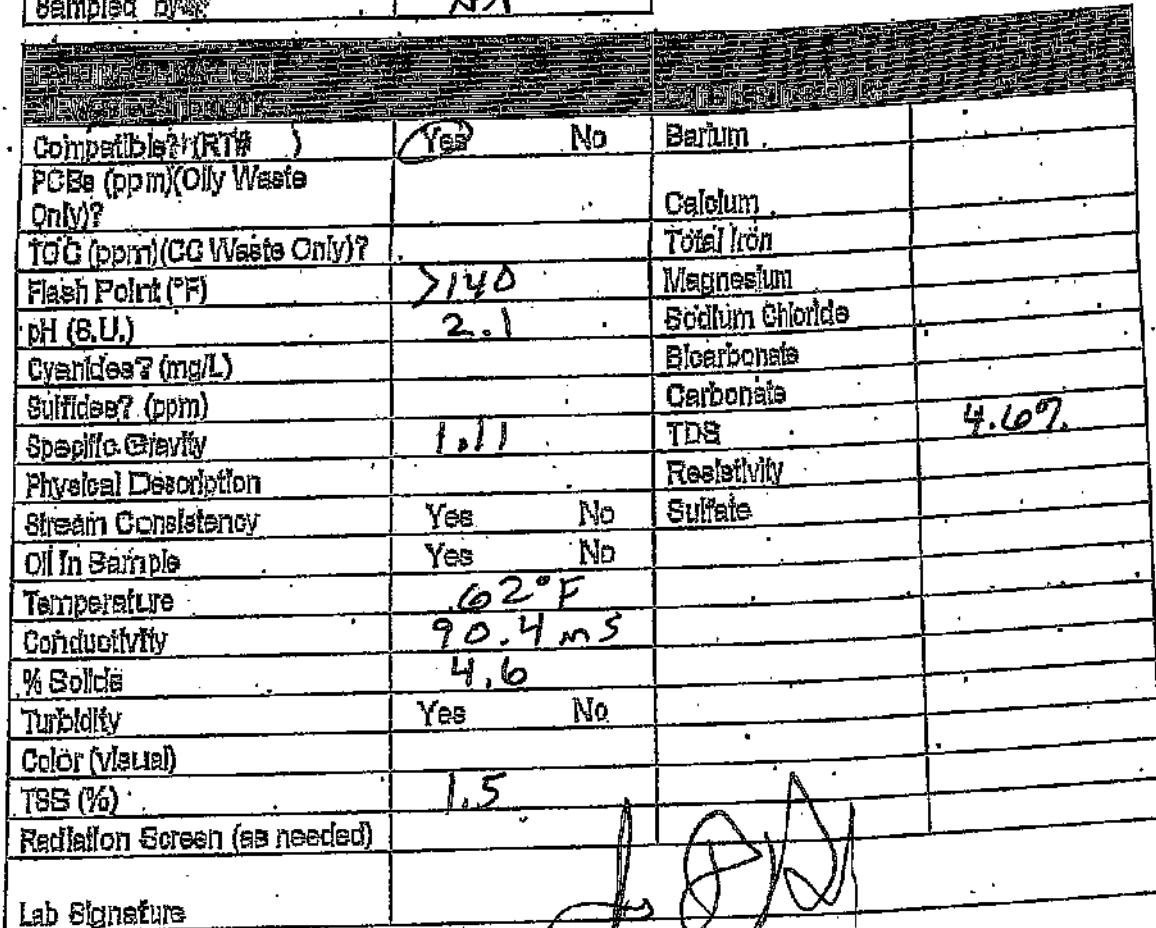 Sampled by
Compatible? (RT# ) Yes No Barium
PCBs (ppm)(Oily Waste
Only)? Calcium
TOC (ppm)(CC Waste Only)? Total Iron
Flash Point (°F) >140 Magnesium
pH (S.U.) 2.1 Sodium Chloride
Cyanides? (mg/L) Bicarbonate
Sulfides? (ppm) Carbonate
Specific Gravity 1.11 TDS 4.6%
Physical Description Resistivity
Stream Consistency Yes No Sulfate
Oil In Sample Yes No
Temperature 62°F
Conductivity 90.4 mS
% Solids 4.6
Turbidity Yes No
Color (visual)
TSS (%) 1.5
Radiation Screen (as needed)
Lab Signature